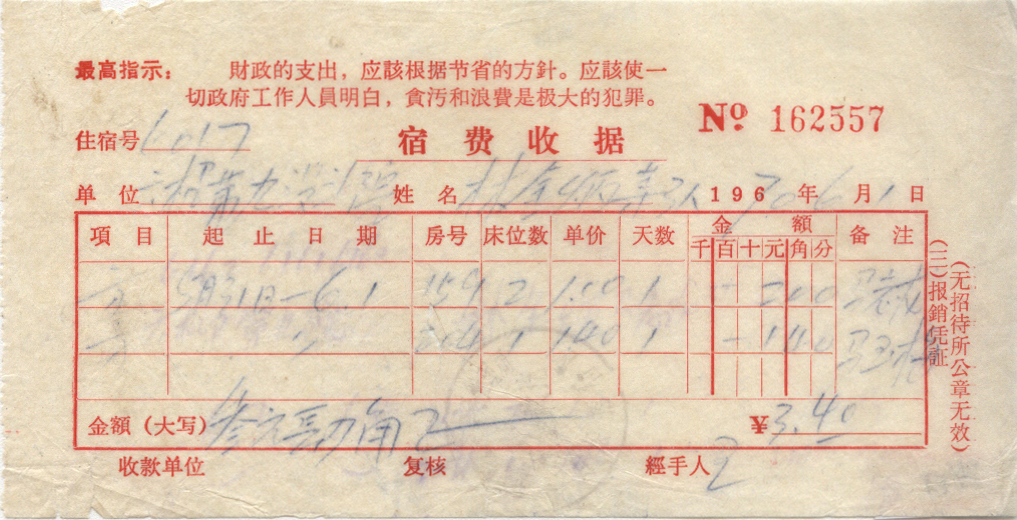 最高指示： 財政的支出，应該根据节省的方針。应該使一
切政府工作人員明白，貪污和浪費是极大的犯罪。
№ 162557
住宿号 6017
宿费收据
单位 姓名 林 等3人 1967 年 6 月 1 日
項目 起止日期 房号 床位数 单价 天数 金額 备注
千 百 十 元 角 分
5月31日-6.1 159 2 1.00 1 2 0 0
204 1 1.40 1 1 4 0
金額（大写） 叁元 角 ¥ 3.40
收款单位 复核 經手人
（三）报銷凭証
（无招待所公章无效）